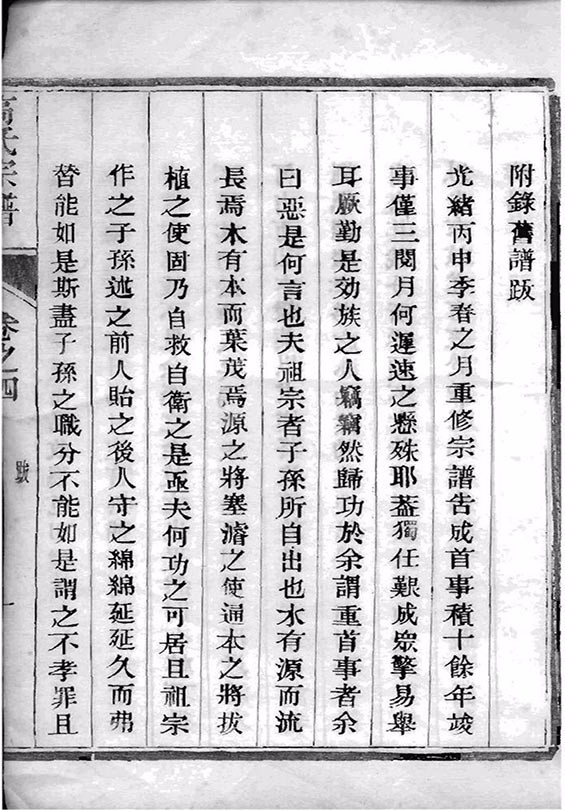 附錄舊譜跋
光緒丙申季春之月重修宗譜告成首事積十餘年竣
事僅三閱月何遲速之懸殊耶葢獨任艱成眾擎易舉
耳厥勤是効族之人竊竊然歸功於余謂重首事者余
曰惡是何言也夫祖宗者子孫所自出也水有源而流
長焉木有本而葉茂焉源之將塞濬之使通本之將拔
植之使固乃自救自衛之是亟夫何功之可居且祖宗
作之子孫述之前人貽之後人守之綿綿延延久而弗
替能如是斯盡子孫之職分不能如是謂之不孝罪且
高氏宗譜
卷之四
跋
一